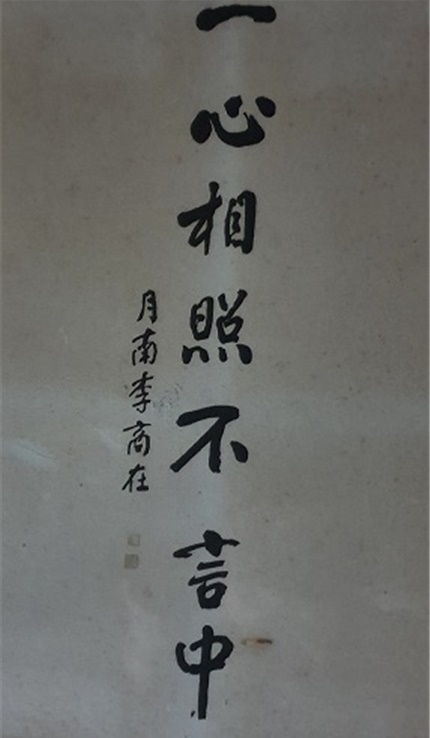 一心相照不言中
月南李商在